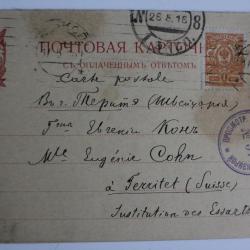 26 8 16
8
ПОЧТОВАЯ КАР
СЪ ОПЛАЧЕННЫМЪ ОТВѢТОМЪ.
Carte postale
Въ г. Территэ (Швейцарія)
Г-жа Евгенія Конъ
Mlle Eugénie Cohn
à Territet (Suisse)
Institution des Essarts